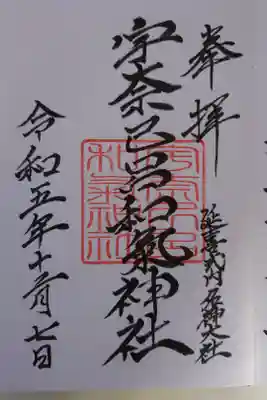 奉拝
延喜式内名神大社
宇奈己呂和氣神社
宇奈己呂
和氣神社
令和五年十一月七日